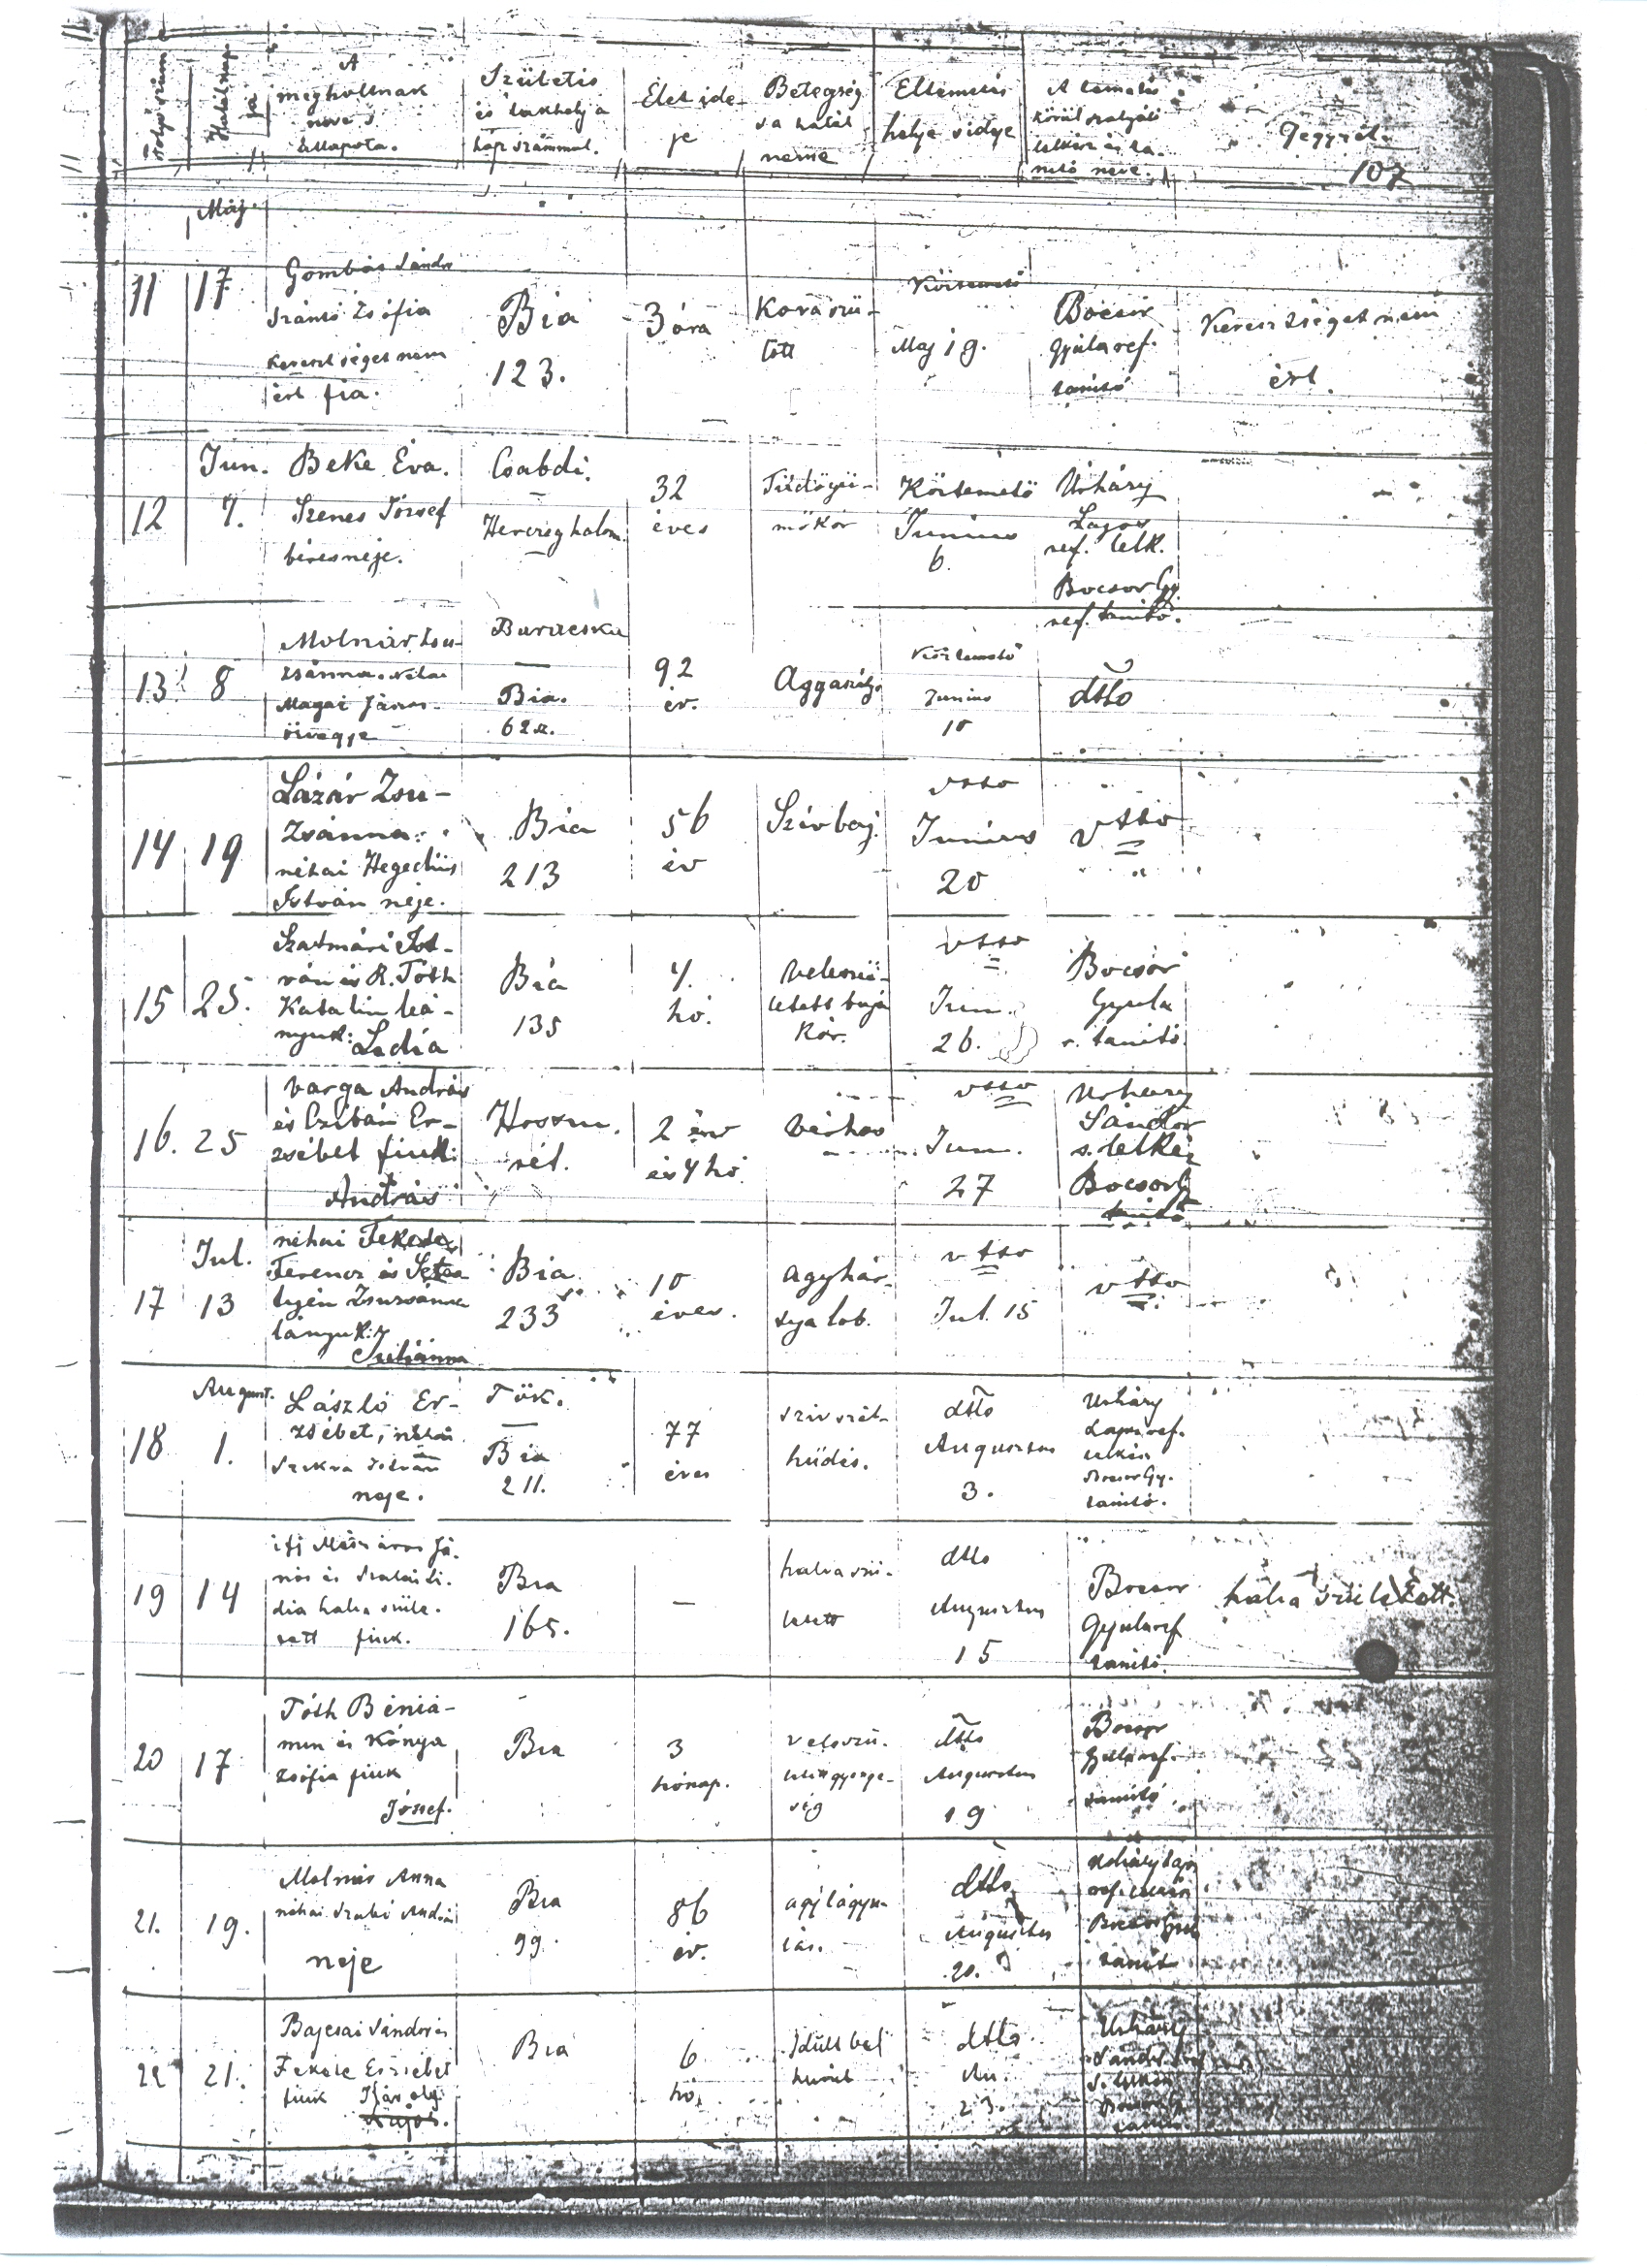 A
megholtnak
neve s
állapota.
Születés
és lakhelye
ház számmal.
Élet ide-
je
Betegség
s a halál
neme
Eltemetés
helye s ideje
A temetés
körül szolgáló
lelkész és ta-
nító neve.
Jegyzet.
107
Máj.
11
17
Gombás Sándor
Szántó Zsófia
Keresztséget nem
ért fia.
Bia
123.
3 óra
Koraszü-
lött
Köztemető
Maj 19.
Bocsor
Gyula ref.
tanító
Keresztséget nem
ért.
12
Jun.
7.
Beke Éva.
Szenes József
béres neje.
Csabdi.
Herczeghalom
32
éves
Tüdőgü-
mőkór
Köztemető
Junius
6.
Úrháry
Lajos
ref. lelk.
Bocsor Gy.
ref. tanító.
13
8
Molnár Zsu-
zsánna. néhai
Magai János
özvegye
Baracska
Bia.
62 sz.
92
év.
Aggaság.
Köztemető
Junius
10
dtto
14
19
Lázár Zsu-
zsánna.
néhai Hegedüs
István neje.
Bia
213
56
év
Szívbaj.
vsso
Junius
20
vsso
15
25.
Szatmári Ist-
ván és R. Tóth
Katalin leá-
nyuk: Ladia
Bia
135
4.
hó.
Veleszü-
letett buja
kór.
vsso
Jun.
26.
Bocsor
Gyula
r. tanító.
16.
25
Varga András
és Czibán Er-
zsébet fiuk:
András
Hosszu
rét.
2 év
és 4 hó
Vérhas
vsso
Jun.
27
Urháry
Sándor
s. lelkész
Bocsor Gy
tanító
17
Jul.
13
néhai Fekete
Ferencz és
Zsuzsánna
lányuk:
Julianna
Bia
233
10
éves.
agyhár-
tya lob.
vsso
Jul. 15
vsso
18
August.
1.
László Er-
zsébet, néhai
István
neje.
Tök.
Bia
211.
77
éves
szivszél-
hüdés.
dtto
Augusztus
3.
Urháry
Lajos ref.
lelkész
Bocsor Gy.
tanító.
19
14
ifj Mészáros Já-
nos és Szalai Li-
dia halva szüle-
tett fiuk.
Bia
165.
—
halva szü-
letett
dtto
Augusztus
15
Bocsor
Gyula ref
tanító.
halva született.
20
17
Tóth Beniá-
min és Kónya
Zsófia fiuk
József.
Bia
3
hónap.
veleszü-
letett gyenge-
ség
dtto
Augusztus
19
Bocsor
Gyula ref.
tanító
21.
19.
Molnár Anna
néhai Szabó András
neje
Bia
99.
86
év.
agylágyu-
lás.
dtto
Augusztus
20.
Urháry Lajos
ref. lelkész
Bocsor Gyula
tanító
22
21.
Bajcsai Sándor és
Fekete Erzsébet
fiuk Károly
Bia
6
hó.
Idült bél
hurut
dtto
Au.
23.
Urháry
Sándor
s. lelkész
Bocsor Gy.